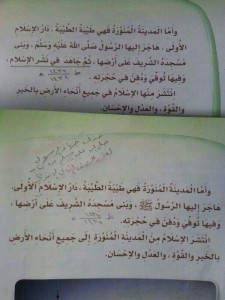 وأمّا المَدينَةُ المُنَوَّرَةُ فَهِيَ طَيْبَةُ الطَّيِّبَةُ ، دَارُ الإسْلامِ
الأُولَى ، هَاجَرَ إليها الرَّسُولُ صَلَّى اللهُ عَلَيْهِ وسَلَّم ، وبَنَى
مَسْجِدَهُ الشَّرِيفَ عَلَى أرْضِهَا ، ثُمَّ جَاهَدَ في نَشْرِ الإسْلامِ ،
وفيها تُوفِّيَ ودُفِنَ في حُجْرَتِهِ .
انْتَشَرَ مِنْهَا الإسْلامُ في جَمِيعِ أنْحَاءِ الأرْضِ بالخَيرِ
والقُوَّةِ ، والعَدْلِ والإحْسَانِ.
وأمّا المَدينَةُ المُنَوَّرَةُ فَهِيَ طَيْبَةُ الطَّيِّبَةُ ، دَارُ الإسْلامِ الأُولَى،
هَاجَرَ إليها الرَّسُولُ ﷺ ، وبَنَى مَسْجِدَهُ الشَّرِيفَ عَلَى أرْضِهَا ،
وفيها تُوفِّيَ ودُفِنَ في حُجْرَتِهِ .
انْتَشَرَ الإسْلامُ مِنَ المَدِينَةِ المُنَوَّرَةِ إلى جَمِيعِ أنْحَاءِ الأرْضِ
بالخَيرِ والقُوَّةِ ، والعَدْلِ والإحْسَانِ.